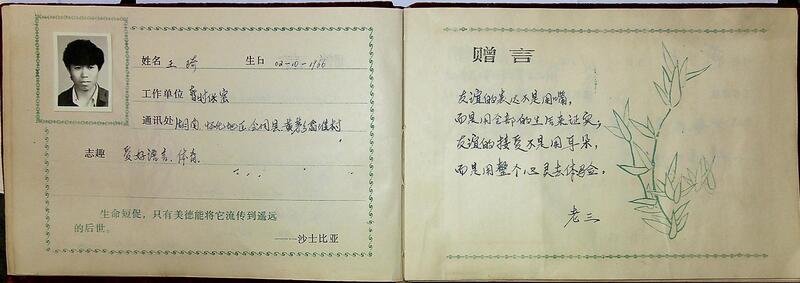 姓名 王琦 生日 02-10-1966
工作单位 暂时保密
通讯处 湖南 怀化地区 会同县
志趣 爱好语言、体育、
生命短促，只有美德能将它流传到遥远
的后世。
——沙士比亚
赠言
友谊的表达不是用嘴，
而是用全部的生活来证实；
友谊的接受不是用耳朵，
而是用整个心灵去体验。
老三